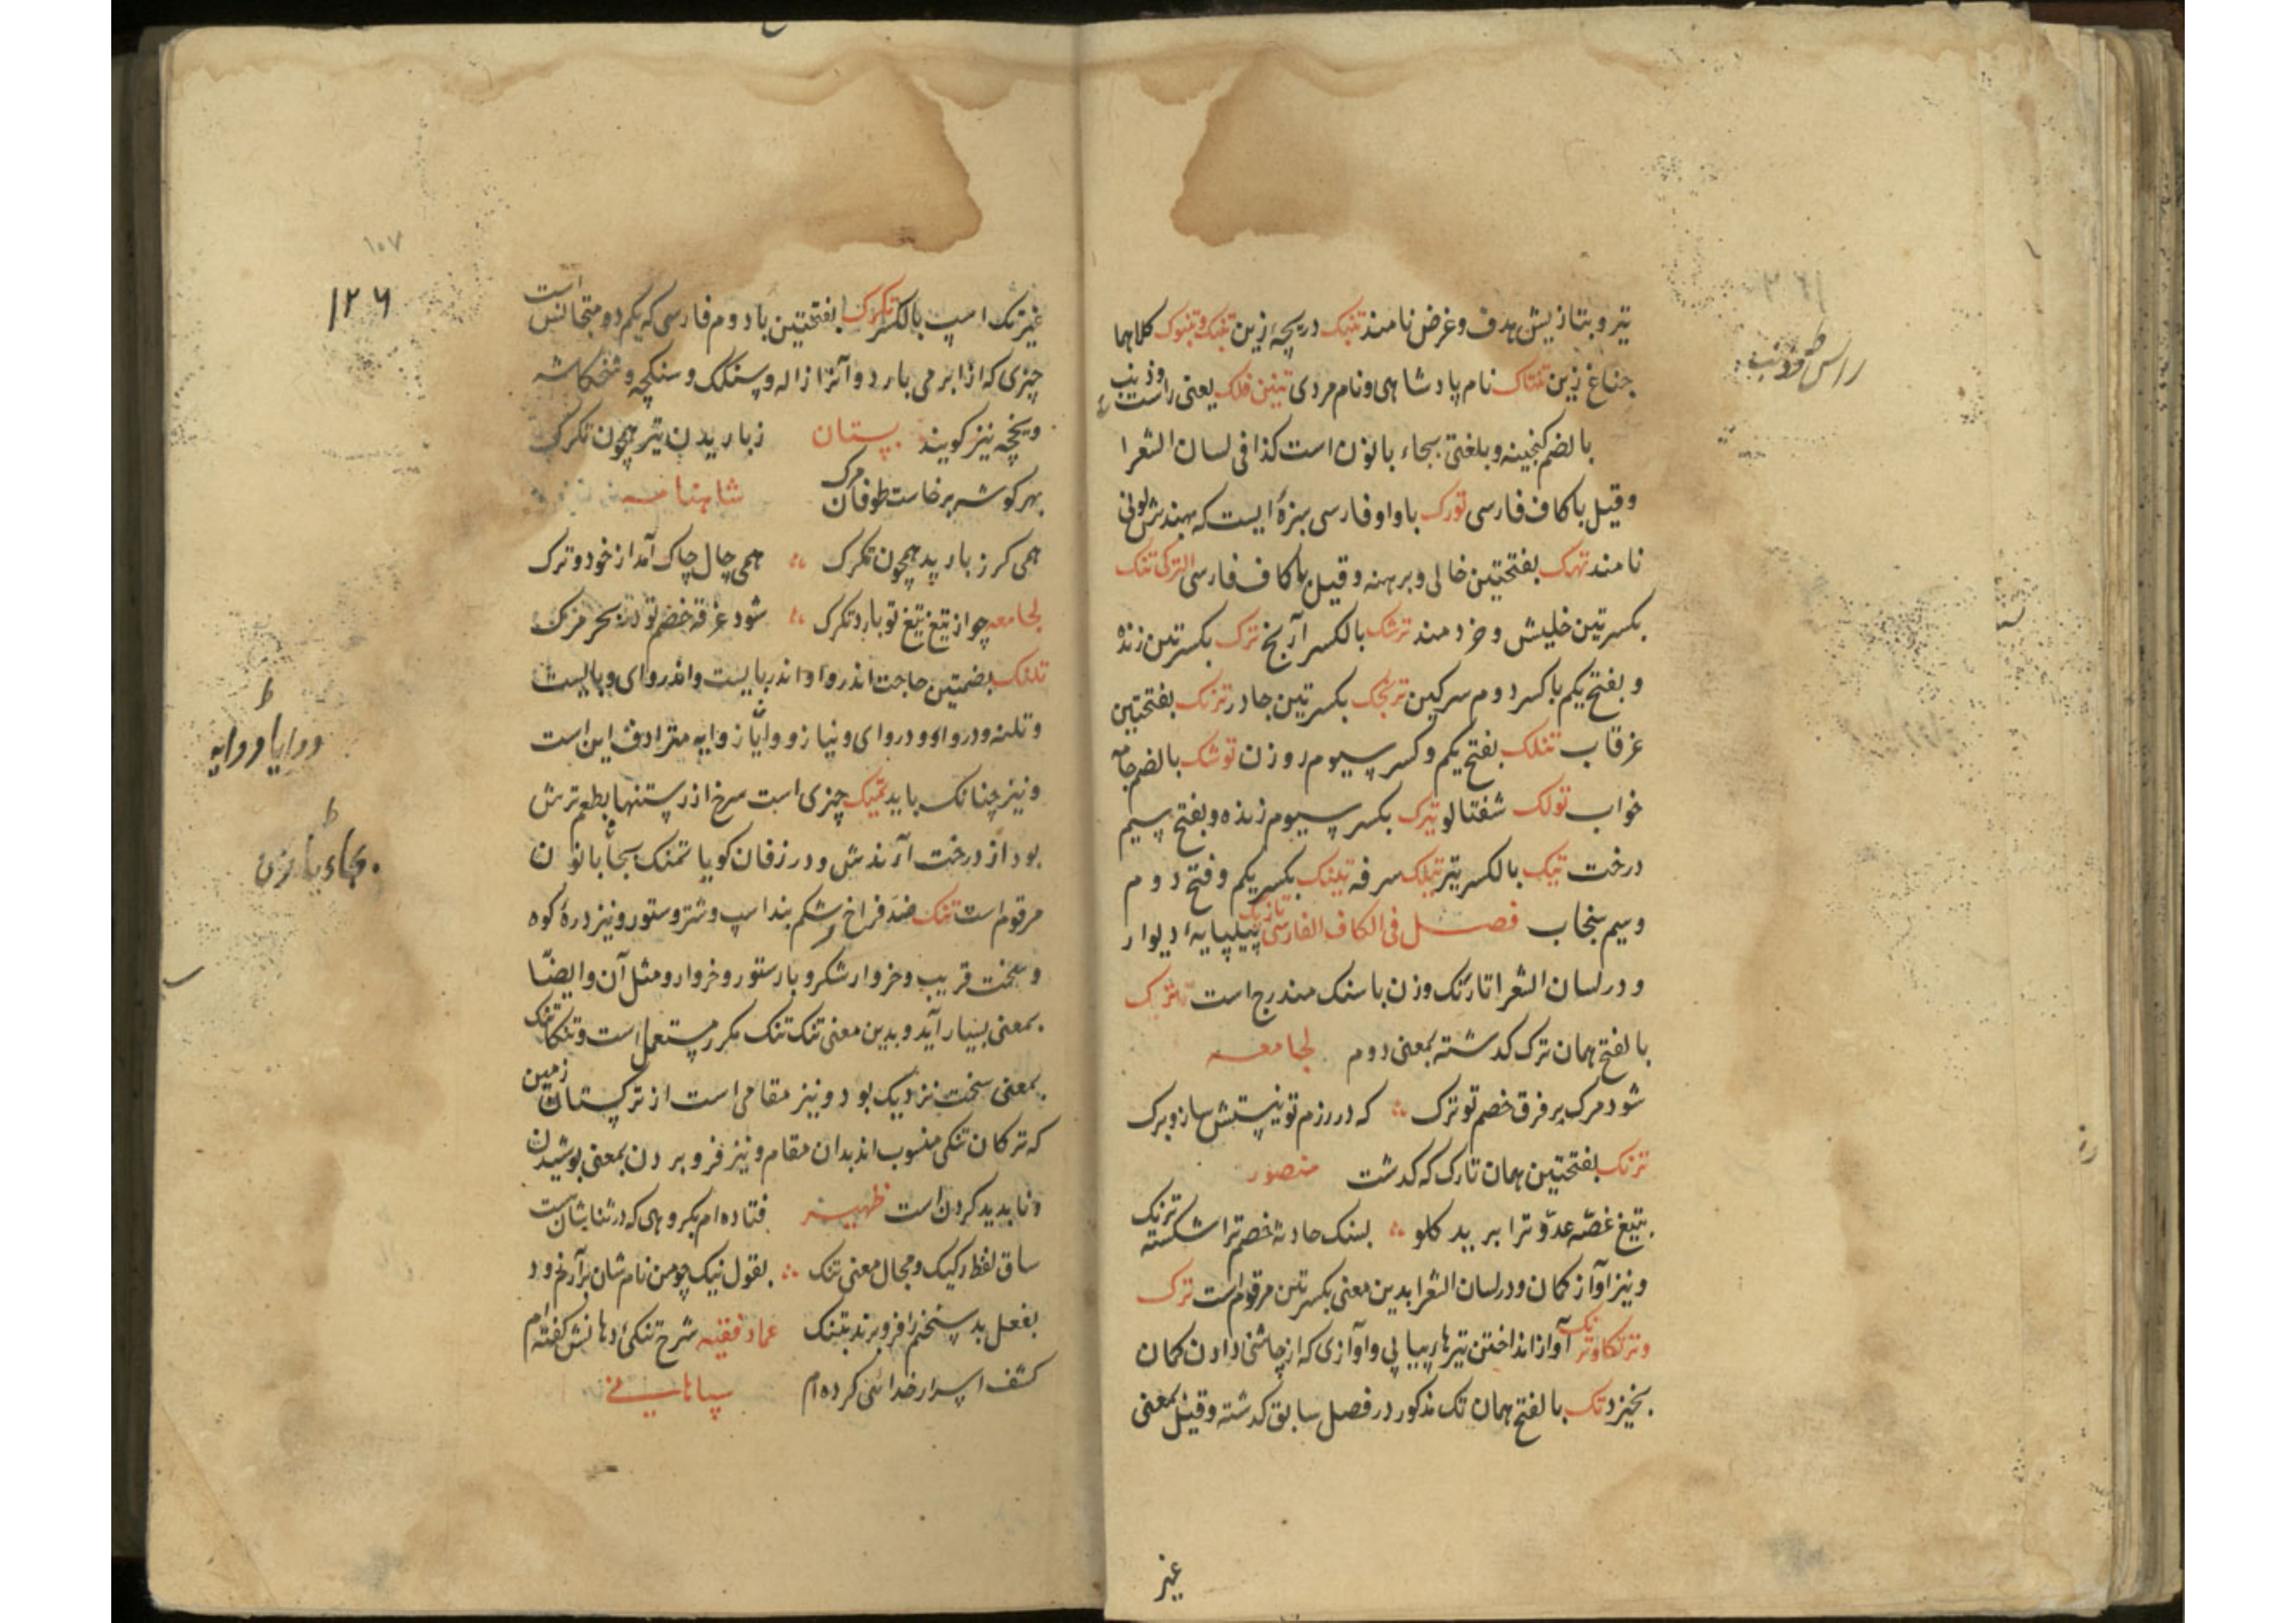 تیر و بتازیش هدف و غرض نامند تنبک دریچهٔ زین تنبک و تنبوک کلاهما
جناغ زین تنتاک نام پادشاهی و نام مردی تنین فلک یعنی راست وذنب
بالضم کنجینه و بلغتی بجاء با نون است کذا فی لسان الشعرا
و قیل با کاف فارسی تورک با واو فارسی سبزهٔ ایست که بهندش لونی
نامند تهک بفتحتین خالی و برهنه و قیل با کاف فارسی الترکی تنک
بکسرتین خلیش و خردمند ترشک بالکسر آرنج ترک بکسرتین زنده
و بفتح یکم با کسر دوم سرکین ترنجک بکسرتین چادر ترنک بفتحتین
غرقاب تنلک بفتح یکم و کسر سیوم روزن توشک بالضم جامه
خواب تولک شفتالو تیرک بکسر سیوم زنده و بفتح سیم
درخت تیک بالکسر تیر تیلک سرفه تیلنک بکسر یکم و فتح دوم
و سیم سنجاب فصل فی الکاف الفارسی تازنک پیلپایه دیوار
و در لسان الشعرا تارنک وزن با سنک مندرج است ترک
بالفتح همان ترک کدشته بمعنی دوم لجامعه
شود مرک بر فرق خصم تو ترک که در رزم تو نیستش ساز و برک
ترنک بفتحتین همان تارک که کدشت منصور
بتیغ غصّه عدوّ ترا برید کلو بسنک حادثه خصم ترا شکسته ترنک
و نیز آواز کمان و در لسان الشعرا بدین معنی بکسرتین مرقوم است ترک
و ترنکا و ترنک آواز انداختن تیرها پیاپی و آوازی که از چاشنی دادن کمان
بخیزد تک بالفتح همان تک مذکور در فصل سابق کدشته و قیل بمعنی
غیر
راس و ذنب
غیر تک اسپ بالکسر تکرک بفتحتین با دوم فارسی که یکم دو متجانس است
چیزی که از ابر می بارد و آنرا ژاله و سنکک و سنکچه و شخکاشه
و یخچه نیز کویند بستان ز باریدن تیر همچون تکرک
بهر کوشه برخاست طوفان مرک شاهنامه
همی کرز بارید همچون تکرک همی چاک چاک آمد از خود و ترک
لجامعه چو از تیغ تیغ تو بارد تکرک شود غرقه خصم تو در بحر مرک
تلنک بضمتین حاجت اندروا و اندربایست و اندروای و بایست
و تلنه و دروا و دروای و نیاز و وایا و وایه مترادف این است
و نیز چنانک باید تمیک چیزی است سرخ از رستنها بطعم ترش
بود از درخت آرندش و در زفان کویا تمنک بجاء با نون
مرقوم است تنک ضد فراخ و شکم بند اسپ و شتر و ستور و نیز درهٔ کوه
و سخت قریب و خروار شکر و بار ستور و خروار و مثل آن و ایضًا
بمعنی بسیار آید و بدین معنی تنک تنک مکرر مستعمل است و تنکاتنک
بمعنی سخت نزدیک بود و نیز مقامی است از ترکستان زمین
که ترکان تنکی منسوب اند بدان مقام و نیز فرو بردن بمعنی پوشیدن
و ناپدید کردن است ظهیر فتاده ام بکروهی که در ثنایشان است
ساق لفظ رکیک و مجال معنی تنک بقول نیک چو من نام شان برآرم زود
بفعل بد سخنم را فرو برند بتنک عماد فقیه شرح تنکی دهانش کفته ام
کشف اسرار خدائی کرده ام سپاهانی
۱۰۷
۱۲۶
دروایا و روایه
بجاء با نون